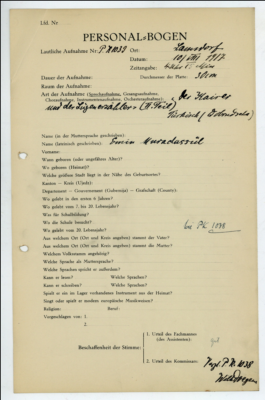 Lfd. Nr.
PERSONAL-BOGEN
Lautliche Aufnahme Nr. PK 1039 Ort: Lamsdorf
Datum: 10/VIII 1917
Zeitangabe:
Dauer der Aufnahme: Durchmesser der Platte: 30 cm
Raum der Aufnahme:
Art der Aufnahme (Sprechaufnahme, Gesangsaufnahme,
Choraufnahme, Instrumentenaufnahme, Orchesteraufnahme): „Der Kaiser
und der Lügenerzähler" (II. Teil) Türkisch
Name (in der Muttersprache geschrieben):
Name (lateinisch geschrieben): Emin
Vorname:
Wann geboren (oder ungefähres Alter)?
Wo geboren (Heimat)?
Welche größere Stadt liegt in der Nähe des Geburtsortes?
Kanton — Kreis (Ujedz):
Department — Gouvernement (Gubernija) — Grafschaft (County):
Wo gelebt in den ersten 6 Jahren?
Wo gelebt vom 7. bis 20. Lebensjahr?
Was für Schulbildung?
Wo die Schule besucht?
Wo gelebt vom 20. Lebensjahr?
Aus welchem Ort (Ort und Kreis angeben) stammt der Vater?
Aus welchem Ort (Ort und Kreis angeben) stammt die Mutter?
Welchem Volksstamm angehörig?
Welche Sprache als Muttersprache?
Welche Sprachen spricht er außerdem?
Kann er lesen? Welche Sprachen?
Kann er schreiben? Welche Sprachen?
Spielt er ein im Lager vorhandenes Instrument aus der Heimat?
Singt oder spielt er modern europäische Musikweisen?
Religion: Beruf:
Vorgeschlagen von: 1.
2.
Beschaffenheit der Stimme:
1. Urteil des Fachmannes
(des Assistenten):
2. Urteil des Kommissars:
PK 1038